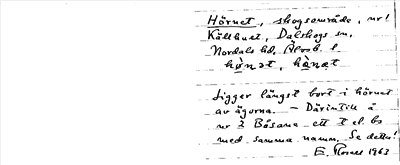 Hörnet, skogsområde, nr 1
Källhult, Dalskogs sn,
Nordals hd, Älvsb. l
Ligger längst bort i hörnet
av ägorna. – Därintill å
nr 2 Båsane ett t el. bs
med samma namn. Se detta!
E. 1963